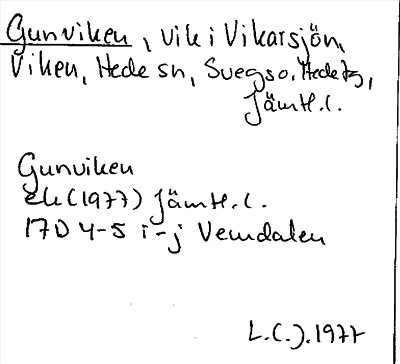 Gunviken, vik i Vikarsjön,
Viken, Hede sn, Svegs o. Hede tg,
Jämtl. l.
Gunviken
ek (1977) Jämtl. l.
17D 4-5 i-j Vemdalen
L.C.J. 1977